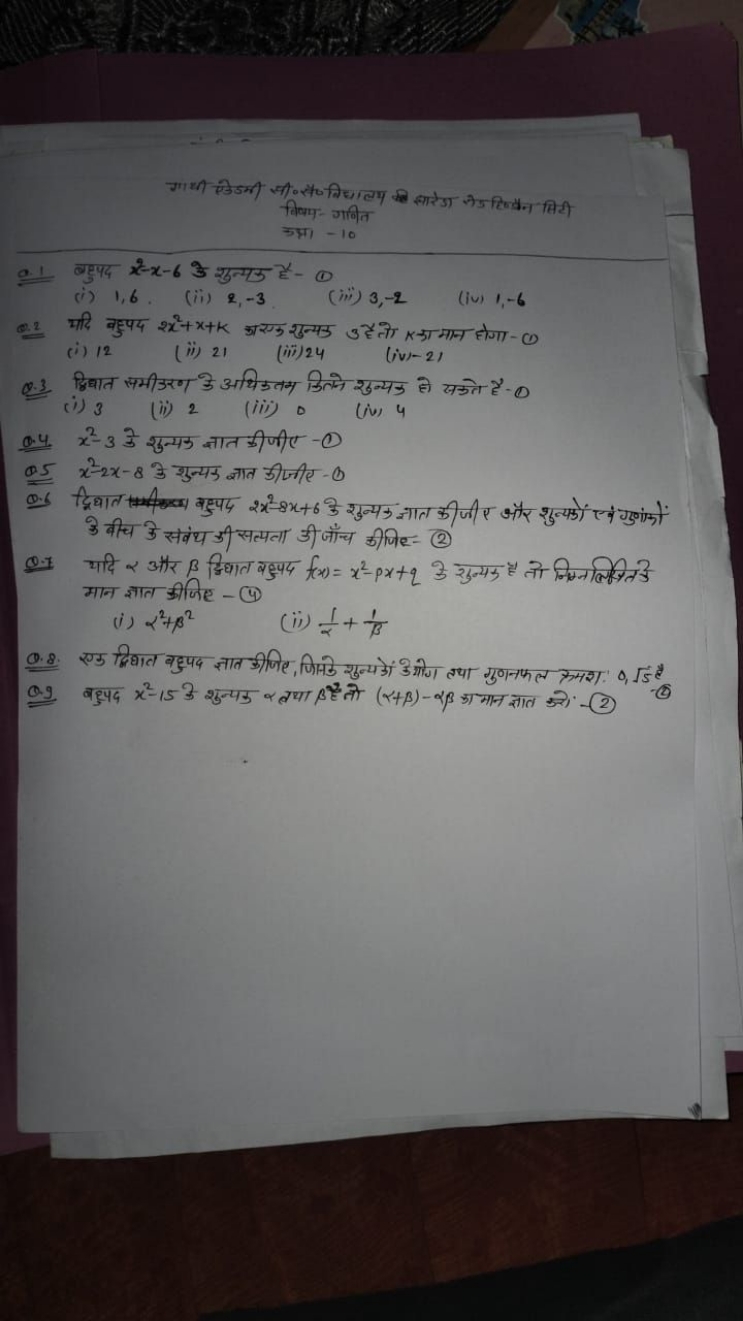 गांधी एकेडमी सी०सै० विद्यालय खारेडा रोड हिण्डौन सिटी
विषय - गणित
कक्षा - 10
Q.1 बहुपद x²-x-6 के शुन्यक है - ①
(i) 1,6. (ii) 2,-3 (iii) 3,-2 (iv) 1,-6
Q.2 यदि बहुपद 2x²+x+K का एक शुन्यक 3 है तो K का मान होगा - ①
(i) 12 (ii) 21 (iii) 24 (iv) -21
Q.3 द्विघात समीकरण के अधिकतम कितने शुन्यक हो सकते है - ①
(i) 3 (ii) 2 (iii) 0 (iv) 4
Q.4 x²-3 के शुन्यक ज्ञात कीजीए - ①
Q.5 x²-2x-8 के शुन्यक ज्ञात कीजीए - ①
Q.6 द्विघात बहुपद 2x²-8x+6 के शुन्यक ज्ञात कीजीए और शुन्यकों एवं गुणांकों
के बीच के संबंध की सत्यता की जाँच कीजिए - ②
Q.7 यदि α और β द्विघात बहुपद f(x) = x²-px+q के शुन्यक है तो निम्नलिखित के
मान ज्ञात कीजिए - ④
(i) α²+β² (ii) 1/α + 1/β
Q.8. एक द्विघात बहुपद ज्ञात कीजिए, जिसके शुन्यकों के योग तथा गुणनफल क्रमशः 0, √5 है
- ②
Q.9 बहुपद x²-15 के शुन्यक α तथा β है तो (α+β)-αβ का मान ज्ञात करो - ②